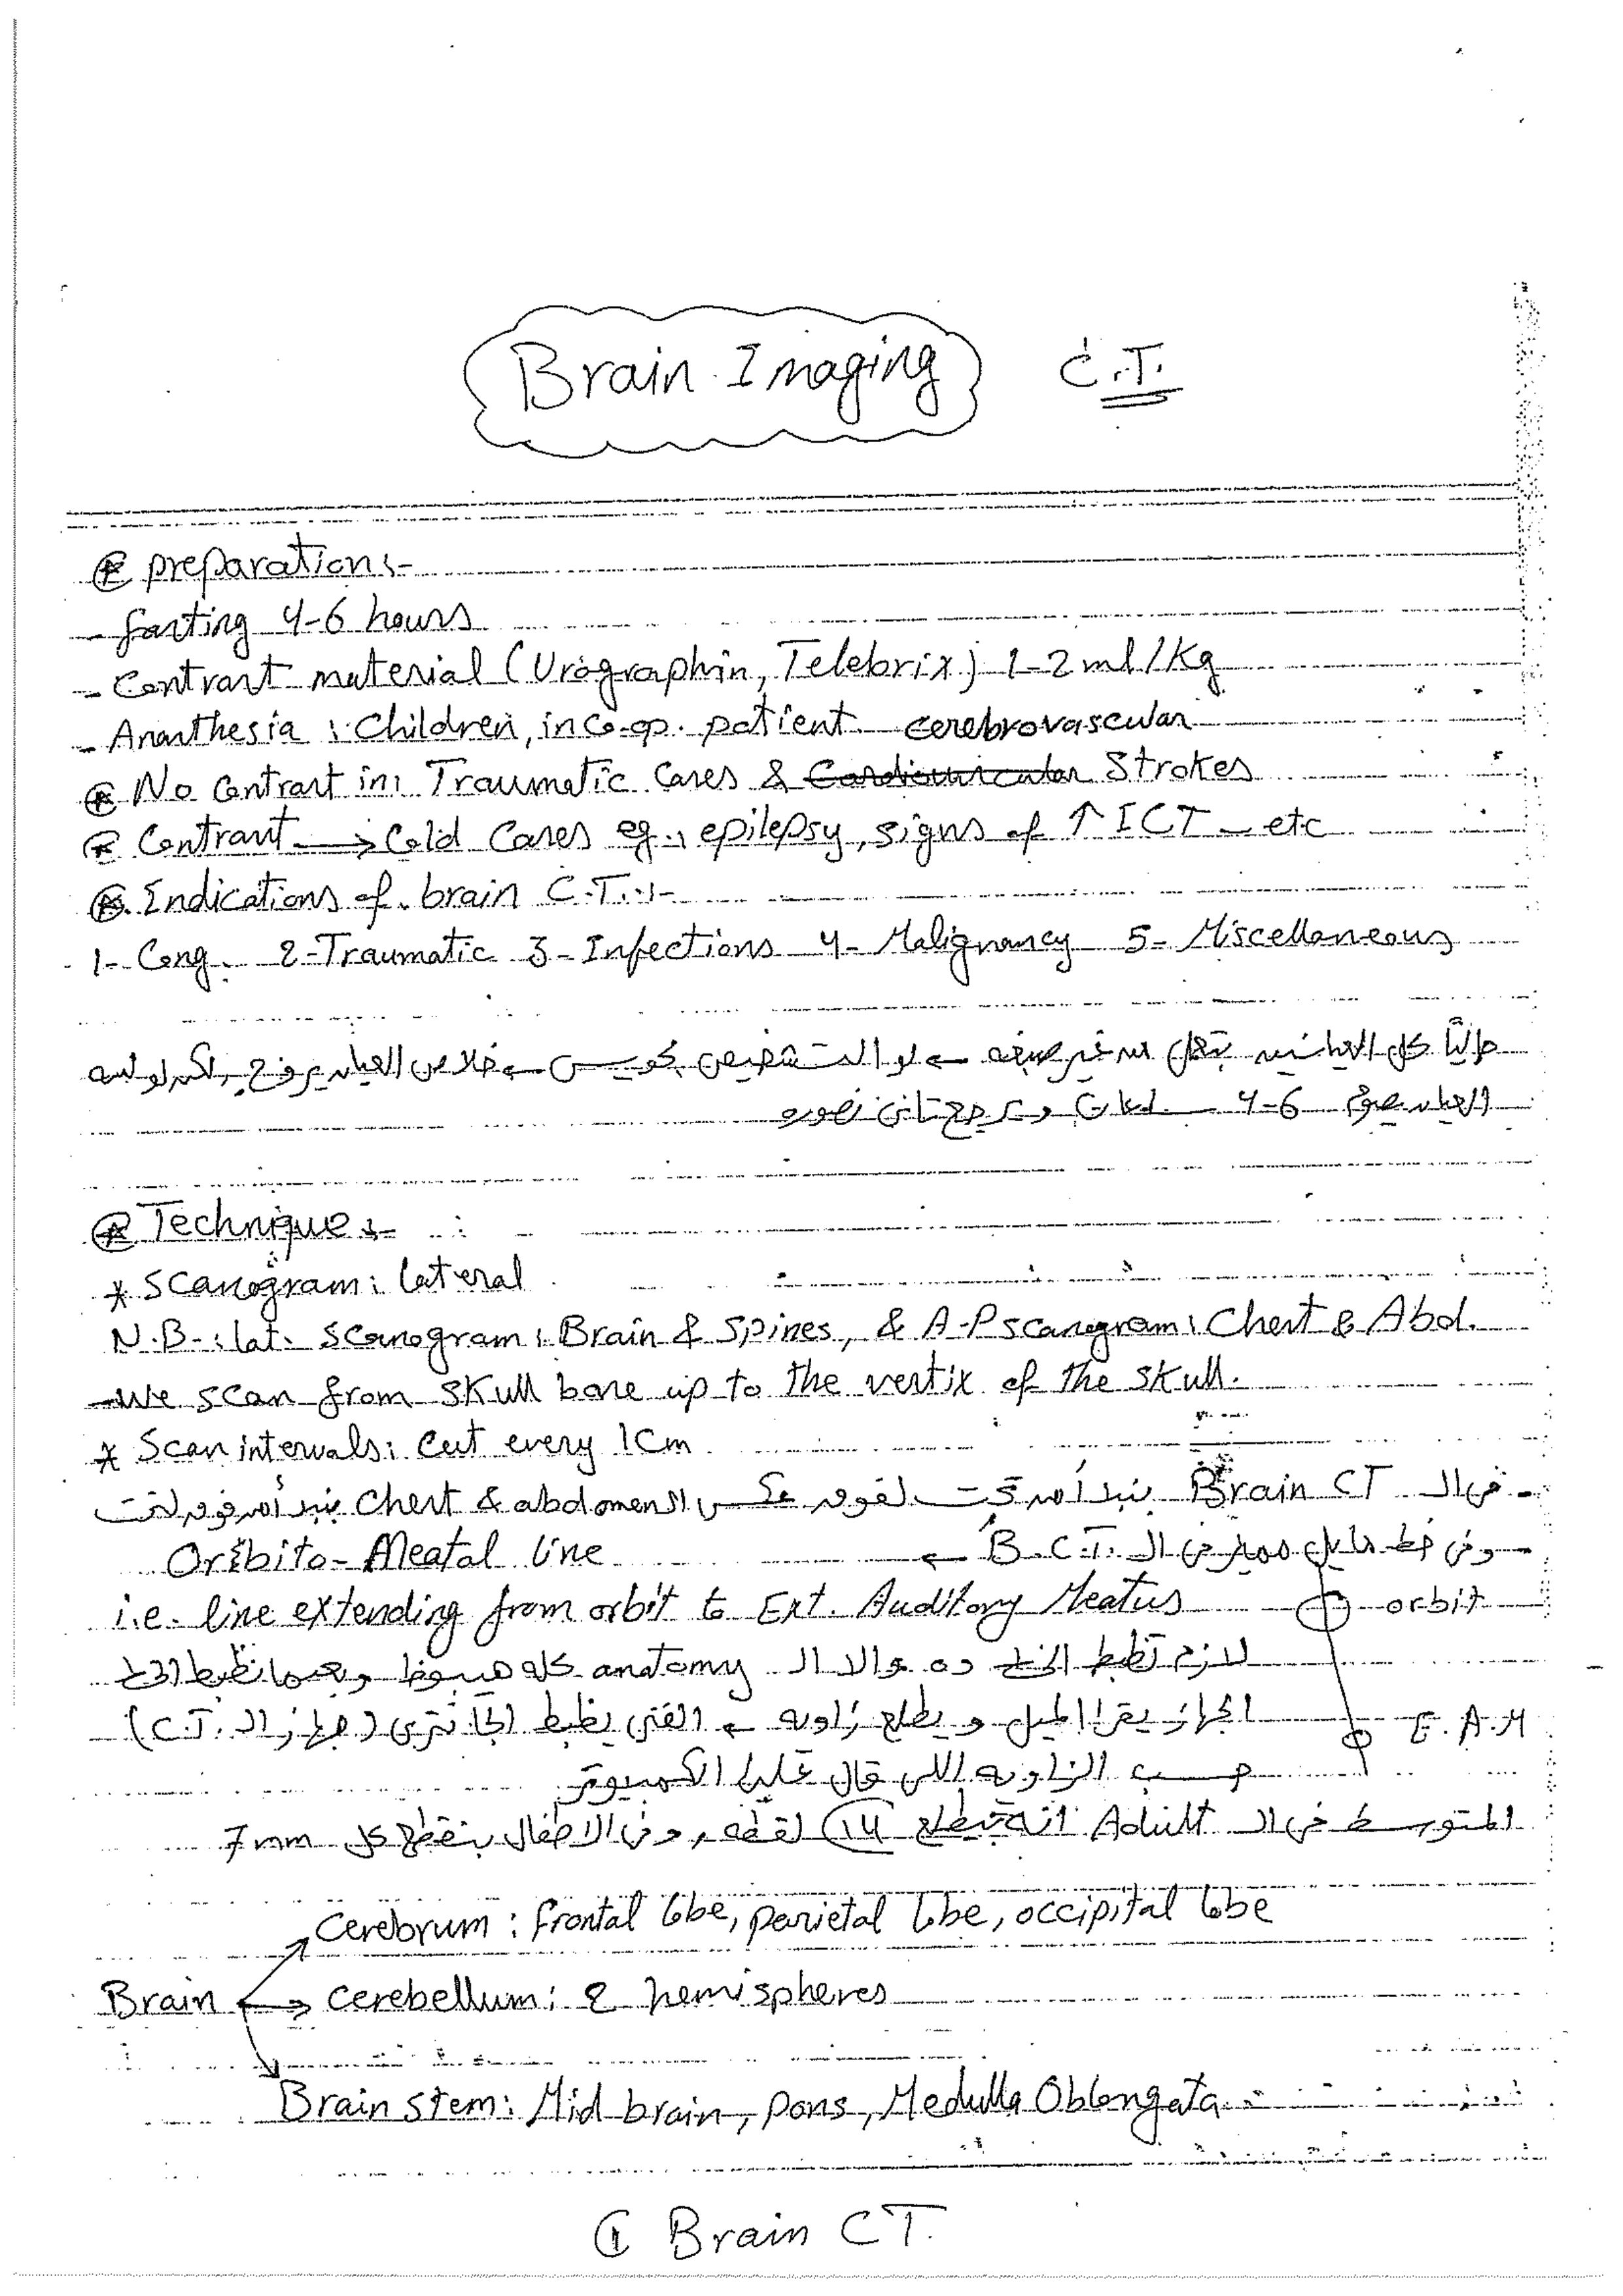 Brain Imaging C.T.
preparation:-
- fasting 4-6 hours
- Contrast material (Urographin, Telebrix) 1-2 ml/Kg
- Anasthesia : Children, inco-op. patient cerebrovascular
No Contrast in: Traumatic Cases & Strokes
Contrast → Cold Cases eg., epilepsy, signs of ↑ ICT - etc
Indications of brain C.T. :-
1- Cong. 2- Traumatic 3- Infections 4- Malignancy 5- Miscellaneous
كل العيانين من غير صبغه ← لو التشخيص كويس ← خلاص العيان يروح، لكن لو لسه
العيان يصوم 4-6 ساعات و يرجع تاني نصوره
Technique :-
* Scanogram: lateral
N.B. : lat. Scanogram: Brain & Spines, & A-P scanogram: Chest & Abd.
- We scan from skull base up to the vertix of the skull.
* Scan intervals: Cut every 1 Cm
- في ال Brain CT بنبدأ من تحت لفوق عكس ال Chest & abdomen بنبدأ من فوق لتحت
- وفي خط مايل مميز في ال B.C.T. ←
Orbito-Meatal line
i.e. line extending from orbit to Ext. Auditory Meatus orbit
لازم نظبط الخط ده والا ال anatomy كله هيبوظ وبعد ما نظبط الخط
الجهاز يقرا الميل و يطلع زاويه ← الفني يظبط الجانتري (جهاز ال C.T.) E.A.M
حسب الزاويه اللي قال عليها الكمبيوتر
المتوسط في ال Adult انه بيطلع 14 لقطه، وفي الاطفال بنقطع كل 7 mm
Cerebrum : frontal lobe, parietal lobe, occipital lobe
Brain → cerebellum: 2 hemispheres
Brain stem: Mid brain, pons, Medulla Oblongata
1 Brain CT.